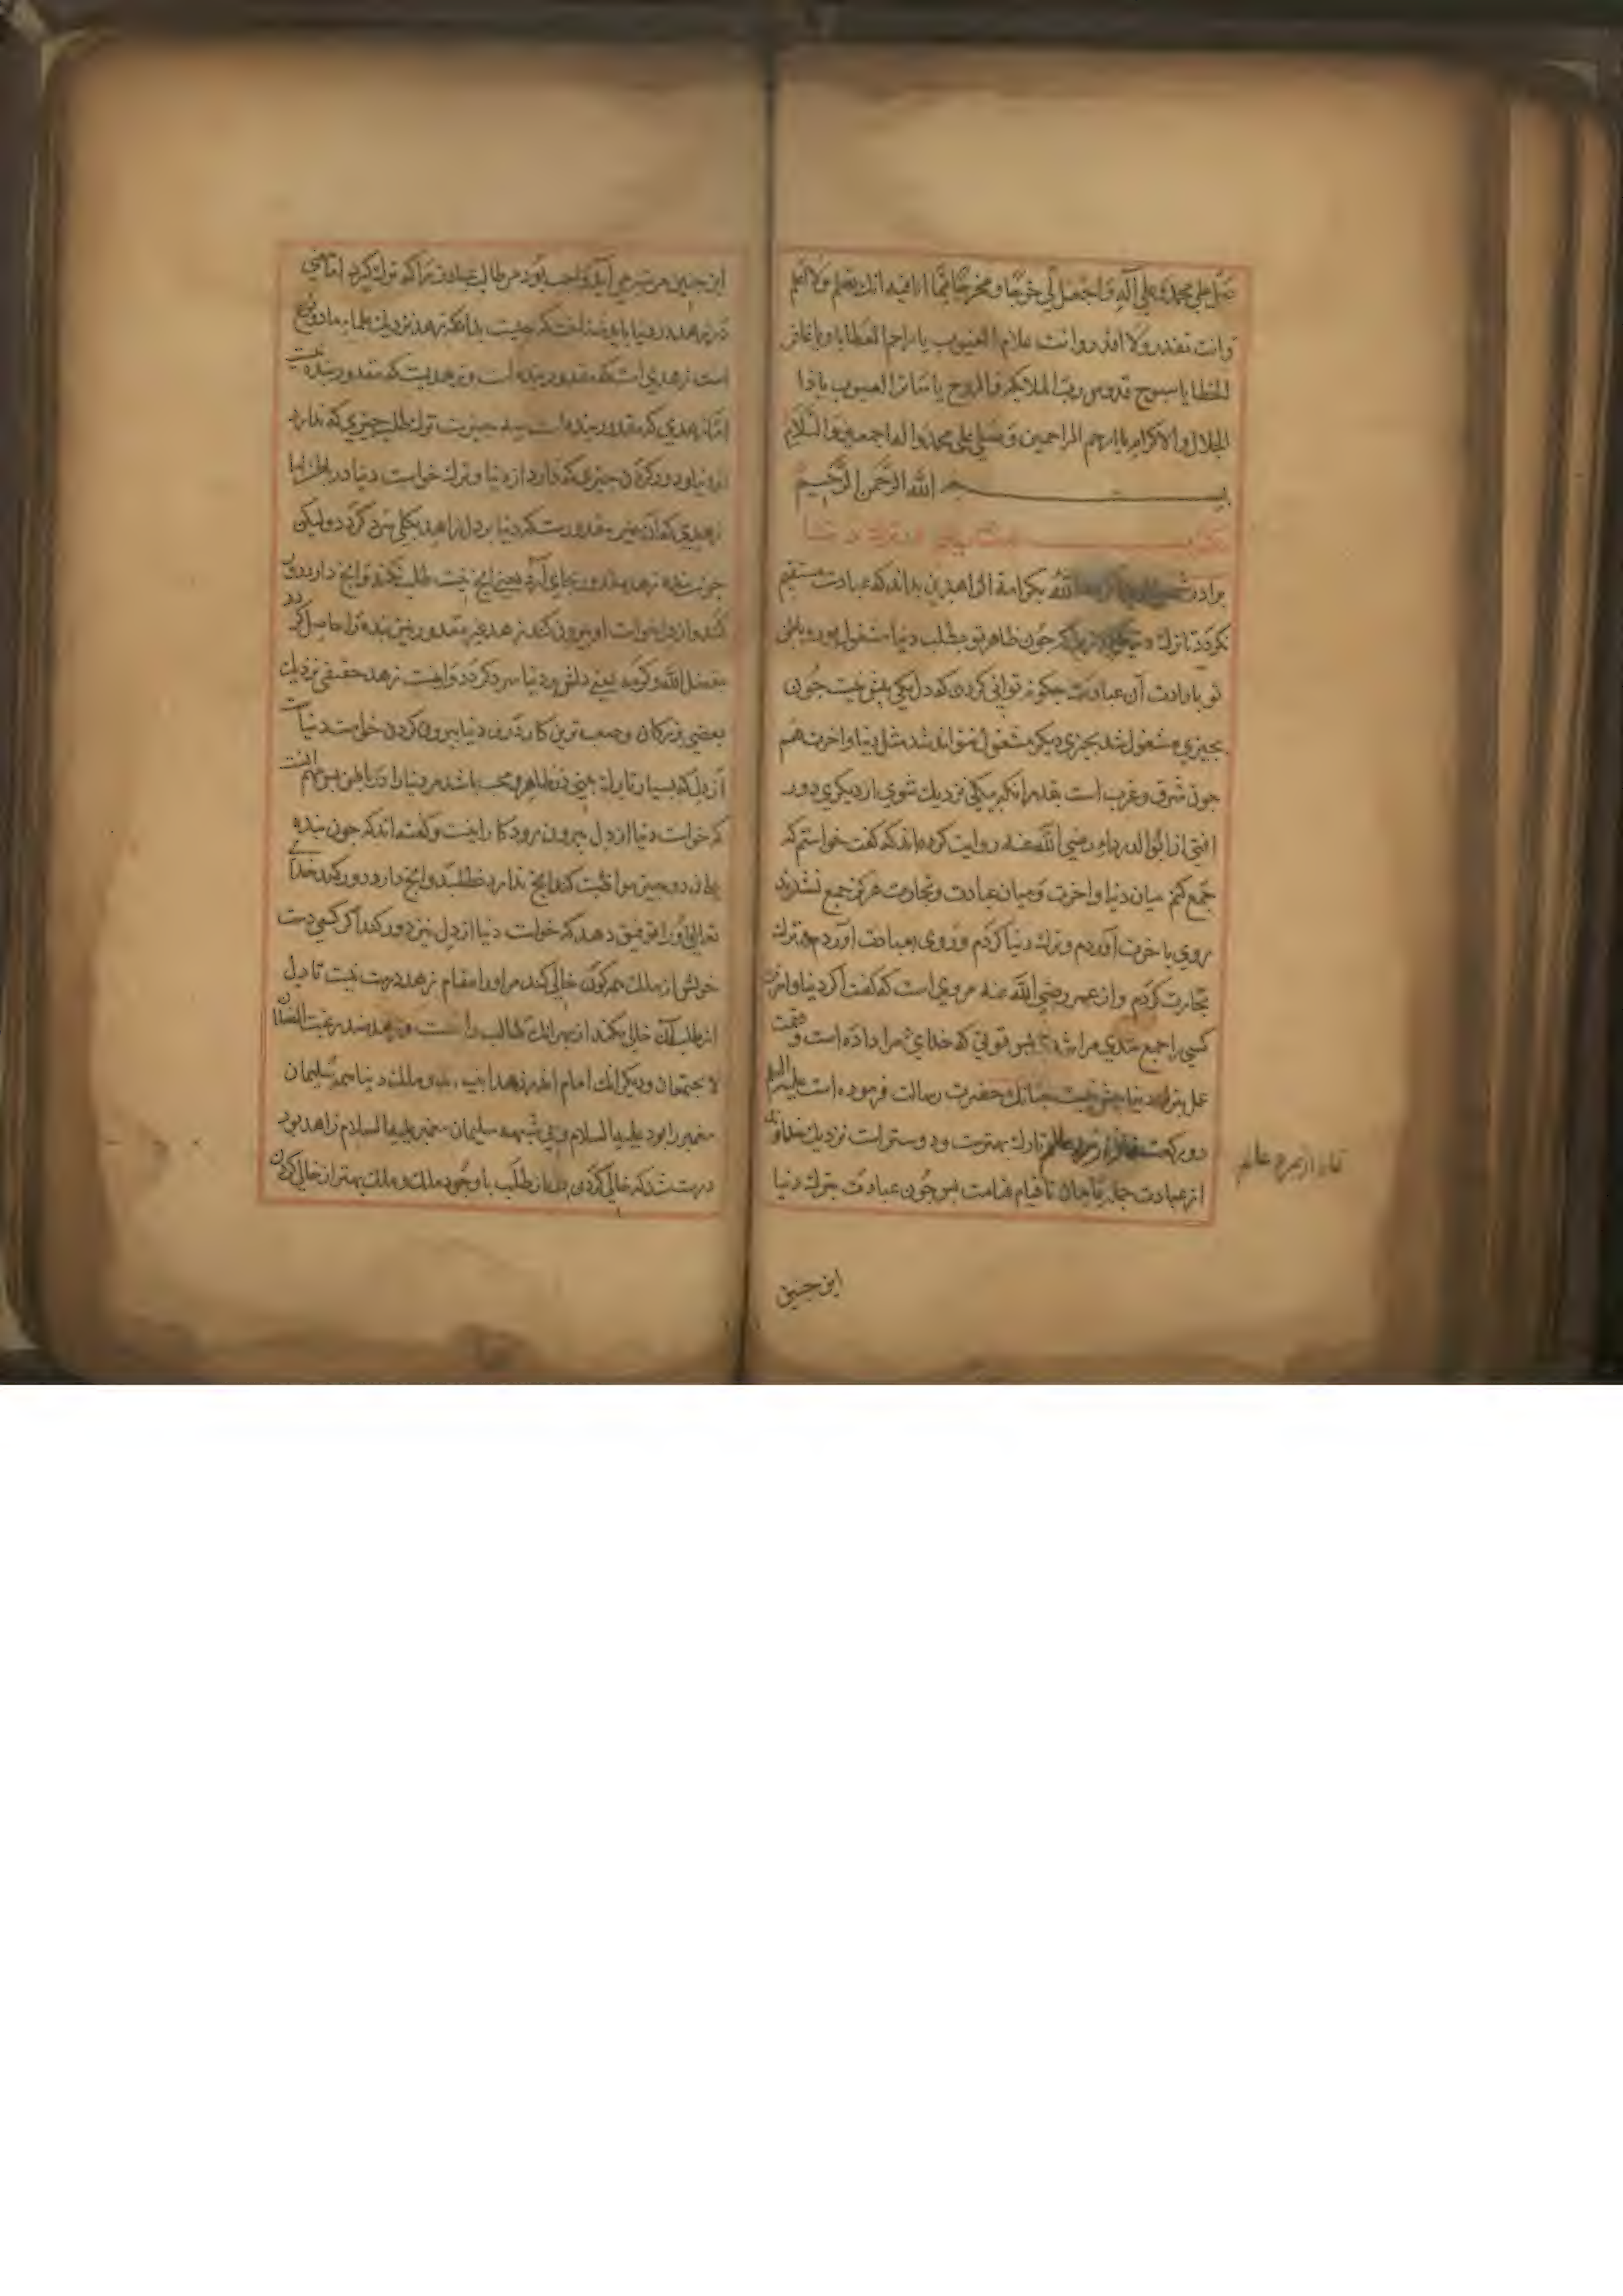 صل علی محمد و علی آله و اجعل لی فرجا و مخرجا مما انا فیه انك تعلم ولا اعلم
وانت تقدر ولا اقدر وانت علام الغیوب یا راحم العطایا و یا غافر
الخطایا سبوح قدوس رب الملائکه والروح یا ساتر العیوب یا ذا
الجلال والاکرام یا ارحم الراحمین وصلی علی محمد واله اجمعین والسلام
بسم الله الرحمن الرحیم
مکتوب
برادر الله بکرامة الزاهدین بداند که عبادت مستقیم
نکردد تا ترك چون ظاهر تو بطلب دنیا مشغول بود و باطن
تو بارادت آن عبادت چکونه توانی کردن که دل یکی بیش نیست چون
بچیزی مشغول شد بچیزی دیکر مشغول نتواند شد مثل دنیا واخرت هم
چون شرق و غرب است بقدر انکه بیکی نزدیك شوی از دیکری دور
افتی از ابوالدرداء رضی الله عنه روایت کرده اند که کفت خواستم که
جمع کنم میان دنیا و اخرت و میان عبادت و تجارت هرکز جمع نشدند
روی باخرت آوردم و ترك دنیا کردم و روی بعبادت آوردم و ترك
تجارت کردم و از عمر رضی الله عنه مروی است که کفت اکر دنیا واخرت
کسی را جمع شدی مرا شدی بس قوتی که خدای مرا داده است و
عمل بترك دنیا بیش نیست چنانك حضرت رسالت فرموده است علیه السلم
دو رکعت نماز از مرد عالم تارك بهترست و دوستر است نزدیك خداوند
از عبادت جمله تا قیام قیامت بس چون عبادت بترك دنیا
نماز از مرد عالم
این چنین
این چنین مرتبه می آید واجب بود مر طالب عبادت را که ترك کیرد اما معنی
زهد در دنیا باید شناخت که چیست بدانکه زهد نزدیك علماء ما دو نوع
است زهدی است که مقدور بنده است و زهدیست که مقدور بنده نیست
اما زهدی که مقدور بنده است سه چیزست ترك طلب چیزی که ندارد
از دنیا و دور کردن چیزی که دارد از دنیا و ترك خواست دنیا در باطن اما
زهدی که آن غیر مقدورست که دنیا بر دل زاهد بکلی سرد کردد ولیکن
چون بنده زهد مقدور بجای آرد یعنی انچ نیست طلب نکند و انچ دارد دور
کند و از دل خواست او بیرون کند زهد غیر مقدور نیز بنده را حاصل کردد
بفضل الله وکرمه یعنی دلش بر دنیا سرد کردد و اینست زهد حقیقی نزدیك
بعضی بزرکان و صعب ترین کار درین دنیا بیرون کردن خواست دنیاست
از دل که بسیار تارك بینی در ظاهر و محب باشد مر دنیا را در باطن بس مهم آنست
که خواست دنیا از دل بیرون رود کار اینست و کفته اند که چون بنده
بدان دو چیز مواظبت کند انچ ندارد نطلبد و انچ دارد دور کند خدای
تعالی او را توفیق دهد که خواست دنیا از دل نیز دور کند اکر کسی دست
خویش از ملك همه کون خالی کند مر او را مقام زهد درست نیست تا دل
از طلب آن خالی نکند از بهر انك طالب راغب است و زهد ضد رغبت الضدان
لا یجتمعان و دیکر انك امام اندر زهد انبیا اند و ملك دنیا همه سلیمان
پیغمبر را بود علیه السلام و بی شبهه سلیمان پیغمبر علیه السلام زاهد بود
درست شد که خالی کردن دل از طلب با وجود ملك و ملك بهتر از خالی کردن